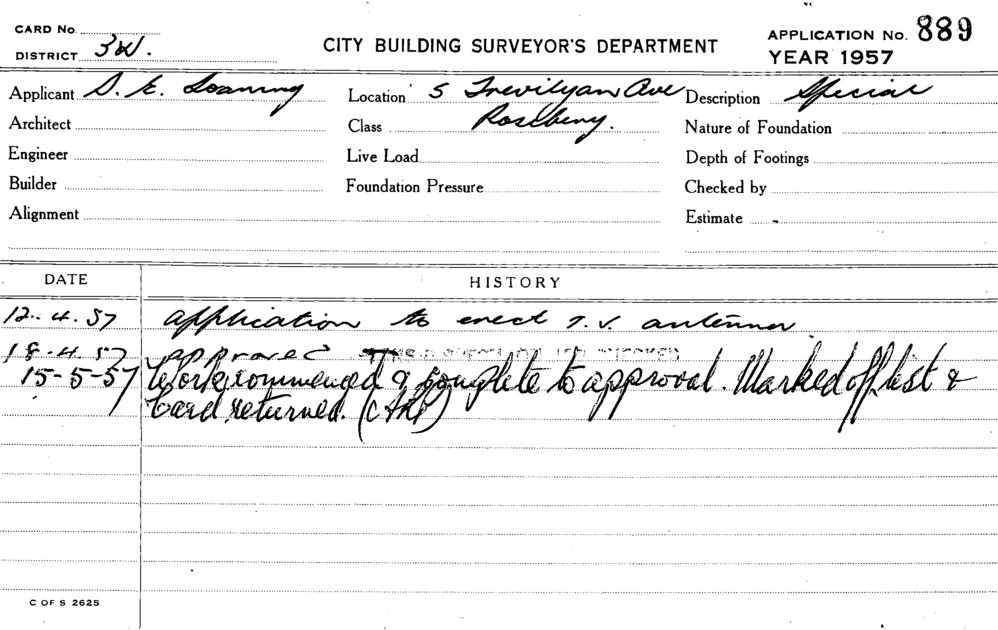 CARD No.
DISTRICT 3W.
CITY BUILDING SURVEYOR'S DEPARTMENT
APPLICATION No. 889
YEAR 1957
Applicant D. E. Loaning
Location 5 Trevilyan Ave
Description Special
Architect
Class Rosebery.
Nature of Foundation
Engineer
Live Load
Depth of Footings
Builder
Foundation Pressure
Checked by
Alignment
Estimate
DATE HISTORY
12.4.57 application to erect T.V. antenner
18.4.57 approved
15-5-57 Work commenced & complete to approval. Marked off list &
Card returned.
C OF S 2625